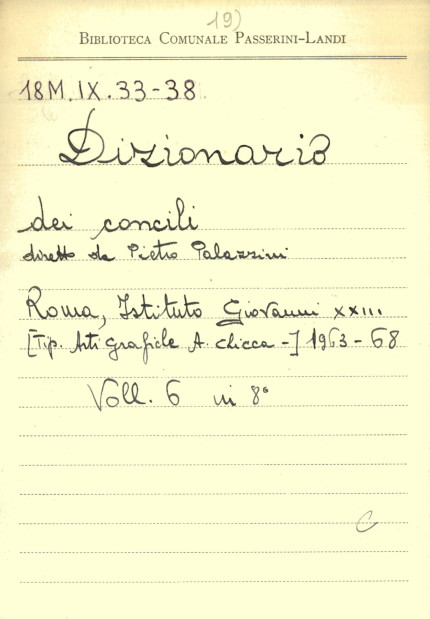 19)
BIBLIOTECA COMUNALE PASSERINI-LANDI
18M.IX.33-38
Dizionario
dei concili
diretto da Pietro Palazzini
Roma, Istituto Giovanni XXIII
[Tip. Arti Grafiche A. Chicca -] 1963-68
Voll. 6 in 8°
C